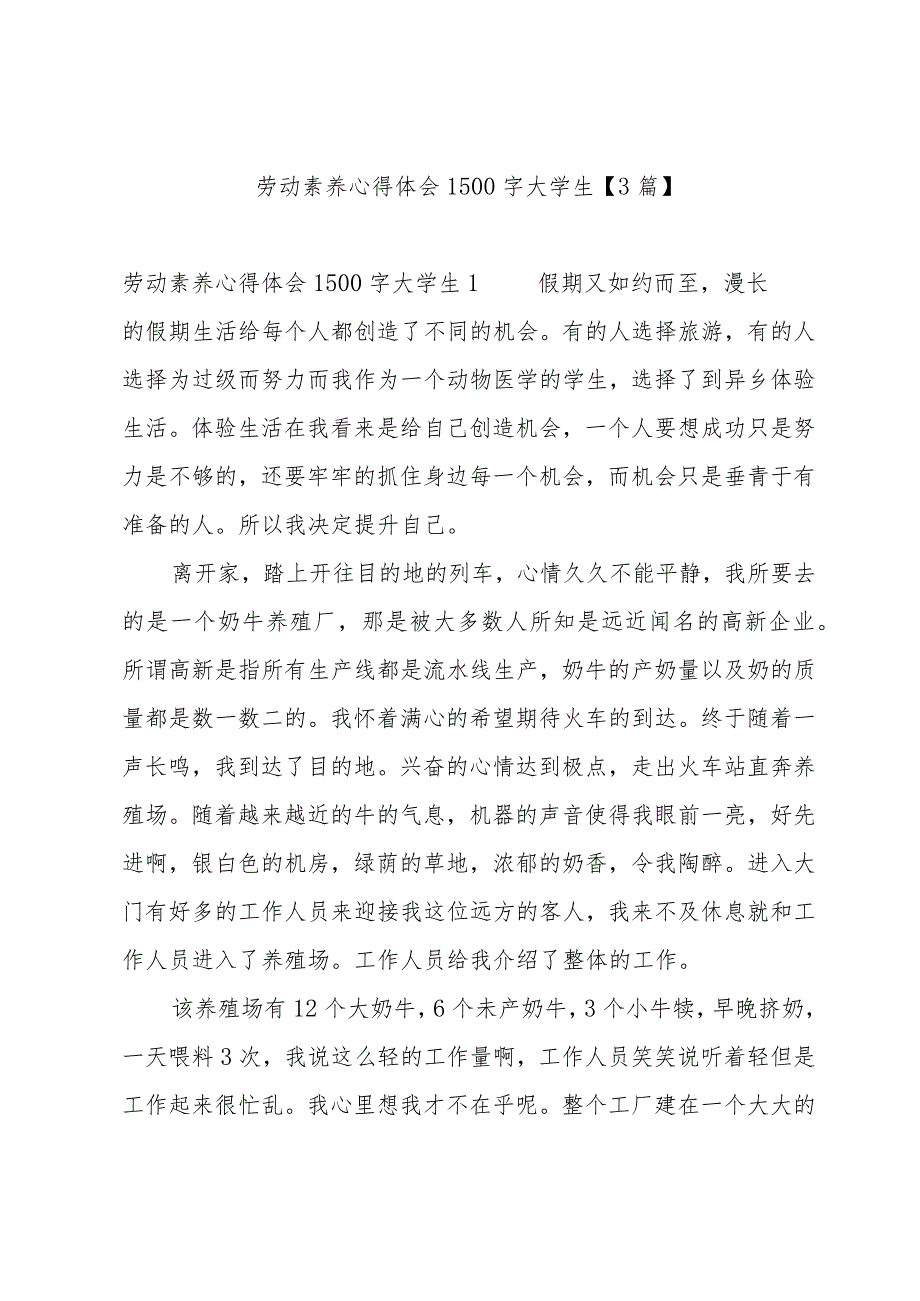 劳动素养心得体会1500字大学生【3篇】
劳动素养心得体会1500字大学生1 假期又如约而至，漫长
的假期生活给每个人都创造了不同的机会。有的人选择旅游，有的人
选择为过级而努力而我作为一个动物医学的学生，选择了到异乡体验
生活。体验生活在我看来是给自己创造机会，一个人要想成功只是努
力是不够的，还要牢牢的抓住身边每一个机会，而机会只是垂青于有
准备的人。所以我决定提升自己。
离开家，踏上开往目的地的列车，心情久久不能平静，我所要去
的是一个奶牛养殖厂，那是被大多数人所知是远近闻名的高新企业。
所谓高新是指所有生产线都是流水线生产，奶牛的产奶量以及奶的质
量都是数一数二的。我怀着满心的希望期待火车的到达。终于随着一
声长鸣，我到达了目的地。兴奋的心情达到极点，走出火车站直奔养
殖场。随着越来越近的牛的气息，机器的声音使得我眼前一亮，好先
进啊，银白色的机房，绿荫的草地，浓郁的奶香，令我陶醉。进入大
门有好多的工作人员来迎接我这位远方的客人，我来不及休息就和工
作人员进入了养殖场。工作人员给我介绍了整体的工作。
该养殖场有12个大奶牛，6个未产奶牛，3个小牛犊，早晚挤奶，
一天喂料3次，我说这么轻的工作量啊，工作人员笑笑说听着轻但是
工作起来很忙乱。我心里想我才不在乎呢。整个工厂建在一个大大的